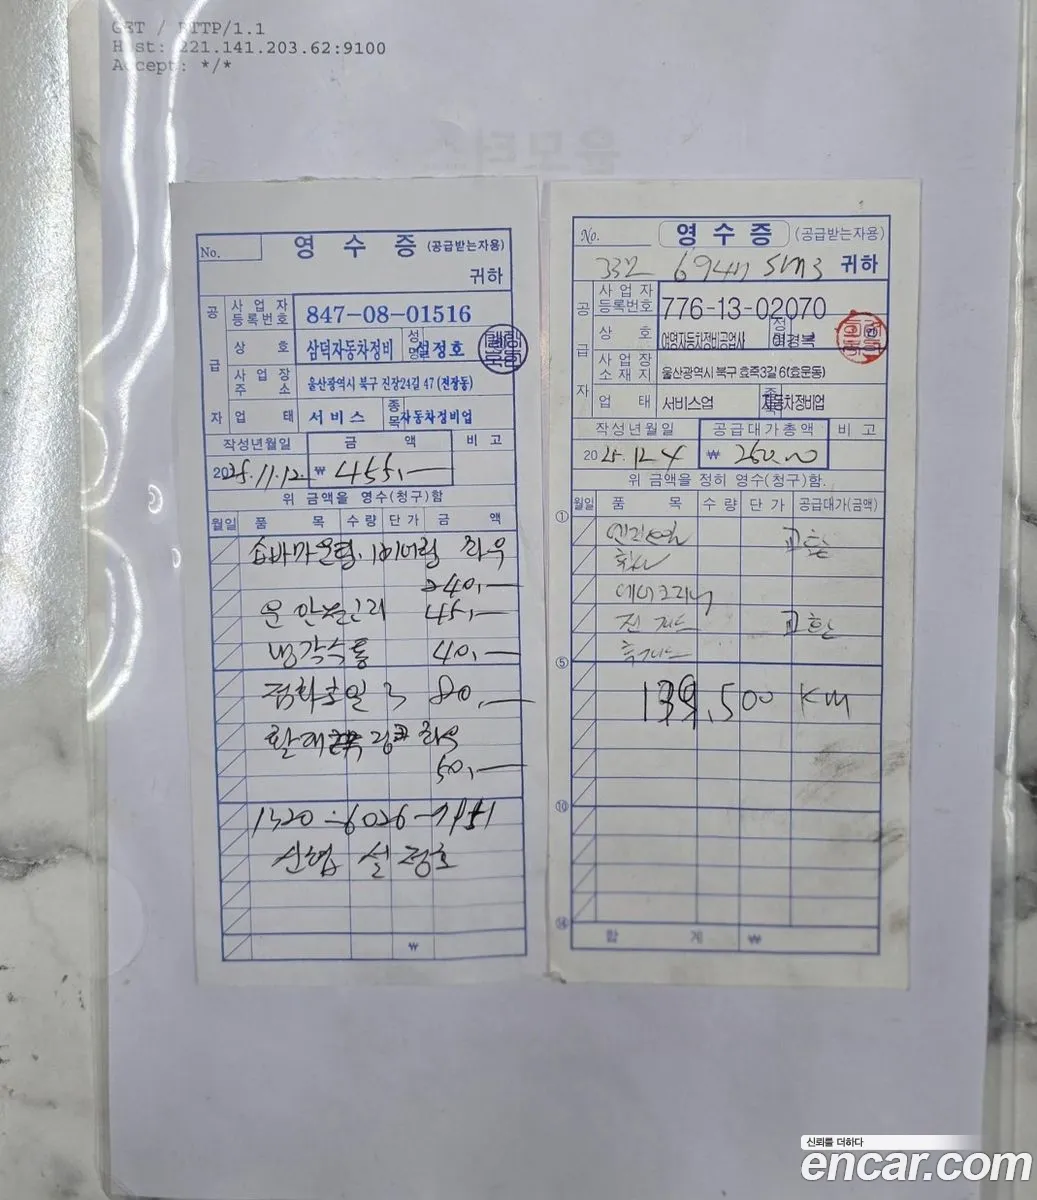 GET / HTTP/1.1
Host: 221.141.203.62:9100
Accept: */*
No.
영 수 증 (공급받는자용)
귀하
공 급 자
사업자 등록번호 847-08-01516
상 호 삼덕자동차정비 성명 설정호
사업장 주소 울산광역시 북구 진장24길 47 (진장동)
업 태 서비스 종목 자동차정비업
작성년월일 금 액 비 고
2025.11.12. ₩ 455,—
위 금액을 영수(청구)함
월일 품 목 수량 단가 금 액
쇼바마운팅, 좌우
240,—
45,—
냉각수통 40,—
점화코일 3 80,—
활대링크 좌우
50,—
신협 설정호
₩
No.
영 수 증 (공급받는자용)
332 6947 SM3 귀하
공 급 자
사업자 등록번호 776-13-02070
상 호 여명자동차정비공업사
사업장 소재지 울산광역시 북구 효죽3길 6(효문동)
업 태 서비스업 종목 자동차정비업
작성년월일 공급대가총액 비 고
2025.12.4 ₩ 260.00
위 금액을 정히 영수(청구)함.
월일 품 목 수량 단가 공급대가(금액)
① 엔진오일 교환
에어크리너
교환
⑤
139,500 KM
⑩
⑭
합 계 ₩
신뢰를 더하다
encar.com